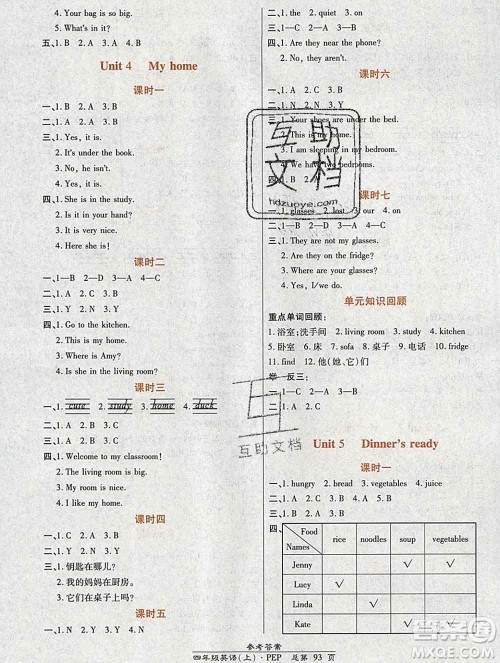 4. Your bag is so big.
5. What's in it?
五、1. B 2. A 3. B 4. C
Unit 4 My home
课时一
一、1. B 2. D 3. A 4. C
二、1. A 2. B 3. C
三、1. Yes, it is.
2. It's under the book.
3. No, he isn't.
4. Yes, it is.
四、1. She is in the study.
2. Is it in your hand?
3. It is very nice.
4. Here she is!
课时二
一、1—B 2—D 3—A 4—C
二、1. A 2. C 3. B
三、1. N 2. Y 3. Y
四、1. Go to the kitchen.
2. This is my home.
3. Is Amy in the study?
4. Is she in the living room?
课时三
一、1. cute 2. study 3. home 4. duck
二、1. B 2. A 3. B
三、1. A 2. C 3. B
四、1. Welcome to my classroom!
2. The living room is big.
3. The bedroom is nice.
课时四
一、1. C 2. A 3. B
二、1. N 2. N 3. Y
三、1. 钥匙在哪儿?
2. 我的妈妈在厨房。
3. 它们在桌子上吗?
课时五
一、1. B 2. A 3. A 4. B
二、1. the 2. on 3. on
四、1. Are they near the phone?
2. No, they aren't.
课时六
三、1. Your shoes are under the bed.
2. This is my home.
3. I am sleeping in my bedroom.
4. We have two bedrooms.
课时七
一、1—C 2—D 3—A 4—B
二、1. glasses 2. lost 3. our 4. on
三、1. They are not my glasses.
2. Are they on the fridge?
3. Where are they?
4. Yes, I/we do.
单元知识回顾
重点单词回顾:
1. 浴室;洗手间 2. living room 3. study
5. 卧室 6. 床 7. sofa 8. 桌子 9. 电话 10. fridge
11. find 12. 他(她、它)们
举一反三:
一、1—C 2—A 3—B
二、1. A 2. C 3. A
Unit 5 Dinner's ready
课时一
一、1. hungry 2. bread 3. vegetables 4. juice
二、1. Y 2. Y 3. N 4. N
三、1. C 2. A 3. B
四、
Food Names rice noodles soup vegetables
Jenny √ √
Lucy √
Linda √
Kate √ √
参考答案
四年级英语(上)·PEP 总第 93 页
互助文档
hdzuoye.com
互助文档
作业帮